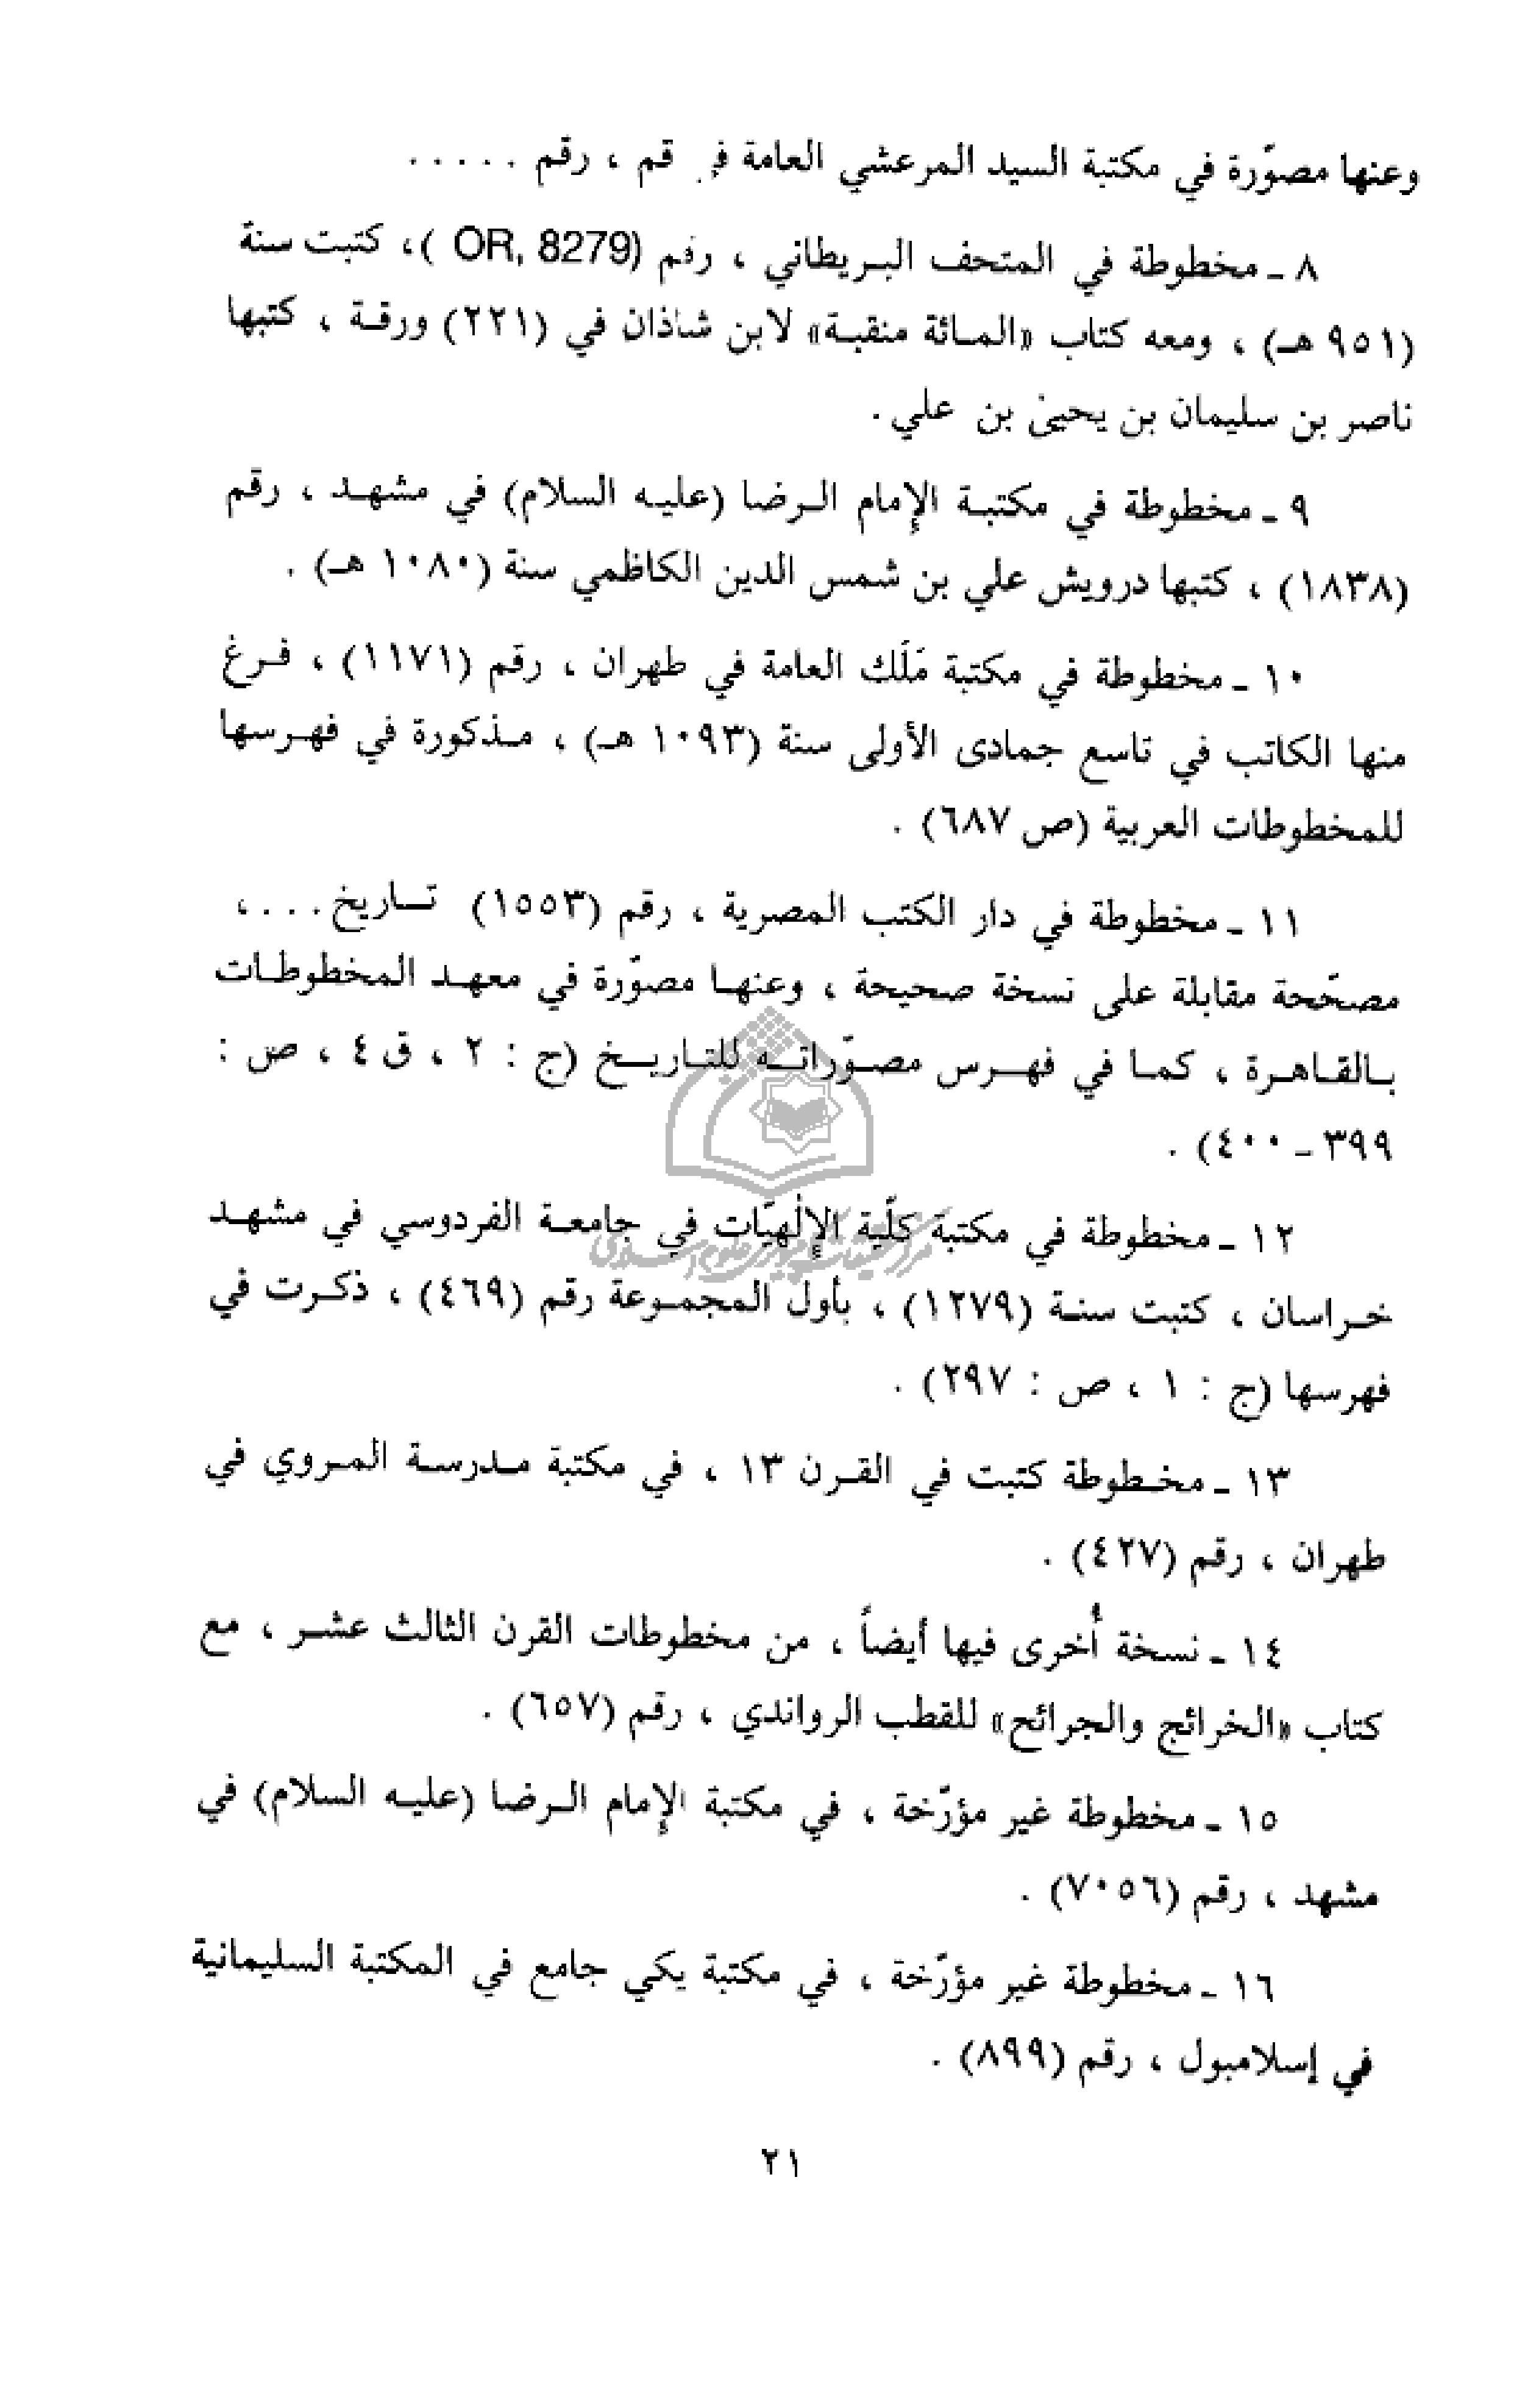 وعنها مصوّرة في مكتبة السيد المرعشي العامة في قم ، رقم . . . . .
٨ ـ مخطوطة في المتحف البـريطاني ، رقم (OR, 8279 )، كتبت سنة
(٩٥١ هـ) ، ومعه كتاب «المـائة منقبـة» لابن شاذان في (٢٢١) ورقـة ، كتبها
ناصر بن سليمان بن يحيىٰ بن علي .
٩ ـ مخطوطة في مكتبـة الإمام الـرضا (عليـه السلام) في مشهـد ، رقم
(١٨٣٨) ، كتبها درويش علي بن شمس الدين الكاظمي سنة (١٠٨٠ هـ) .
١٠ ـ مخطوطة في مكتبة مَلَك العامة في طهران ، رقم (١١٧١) ، فـرغ
منها الكاتب في تاسع جمادى الأولى سنة (١٠٩٣ هـ) ، مـذكورة في فهـرسها
للمخطوطات العربية (ص ٦٨٧) .
١١ ـ مخطوطة في دار الكتب المصرية ، رقم (١٥٥٣) تـاريخ . . . ،
مصحّحة مقابلة على نسخة صحيحة ، وعنهـا مصوّرة في معهـد المخطوطـات
بـالقـاهـرة ، كمـا في فهـرس مصـوّراتـه للتـاريـخ (ج : ٢ ، ق ٤ ، ص :
٣٩٩ ـ ٤٠٠) .
١٢ ـ مخطوطة في مكتبة كلّية الإلٰهيّات في جامعـة الفردوسي في مشهـد
خـراسان ، كتبت سنـة (١٢٧٩) ، بأول المجمـوعة رقم (٤٦٩) ، ذكـرت في
فهرسها (ج : ١ ، ص : ٢٩٧) .
١٣ ـ مخـطوطة كتبت في القـرن ١٣ ، في مكتبة مـدرسـة المـروي في
طهران ، رقم (٤٢٧) .
١٤ ـ نسخة أُخرى فيها أيضاً ، من مخطوطات القرن الثالث عشـر ، مع
كتاب «الخرائج والجرائح» للقطب الرواندي ، رقم (٦٥٧) .
١٥ ـ مخطوطة غير مؤرّخة ، في مكتبة الإمام الـرضا (عليـه السلام) في
مشهد ، رقم (٧٠٥٦) .
١٦ ـ مخطوطة غير مؤرّخة ، في مكتبة يكي جامع في المكتبة السليمانية
في إسلامبول ، رقم (٨٩٩) .
٢١